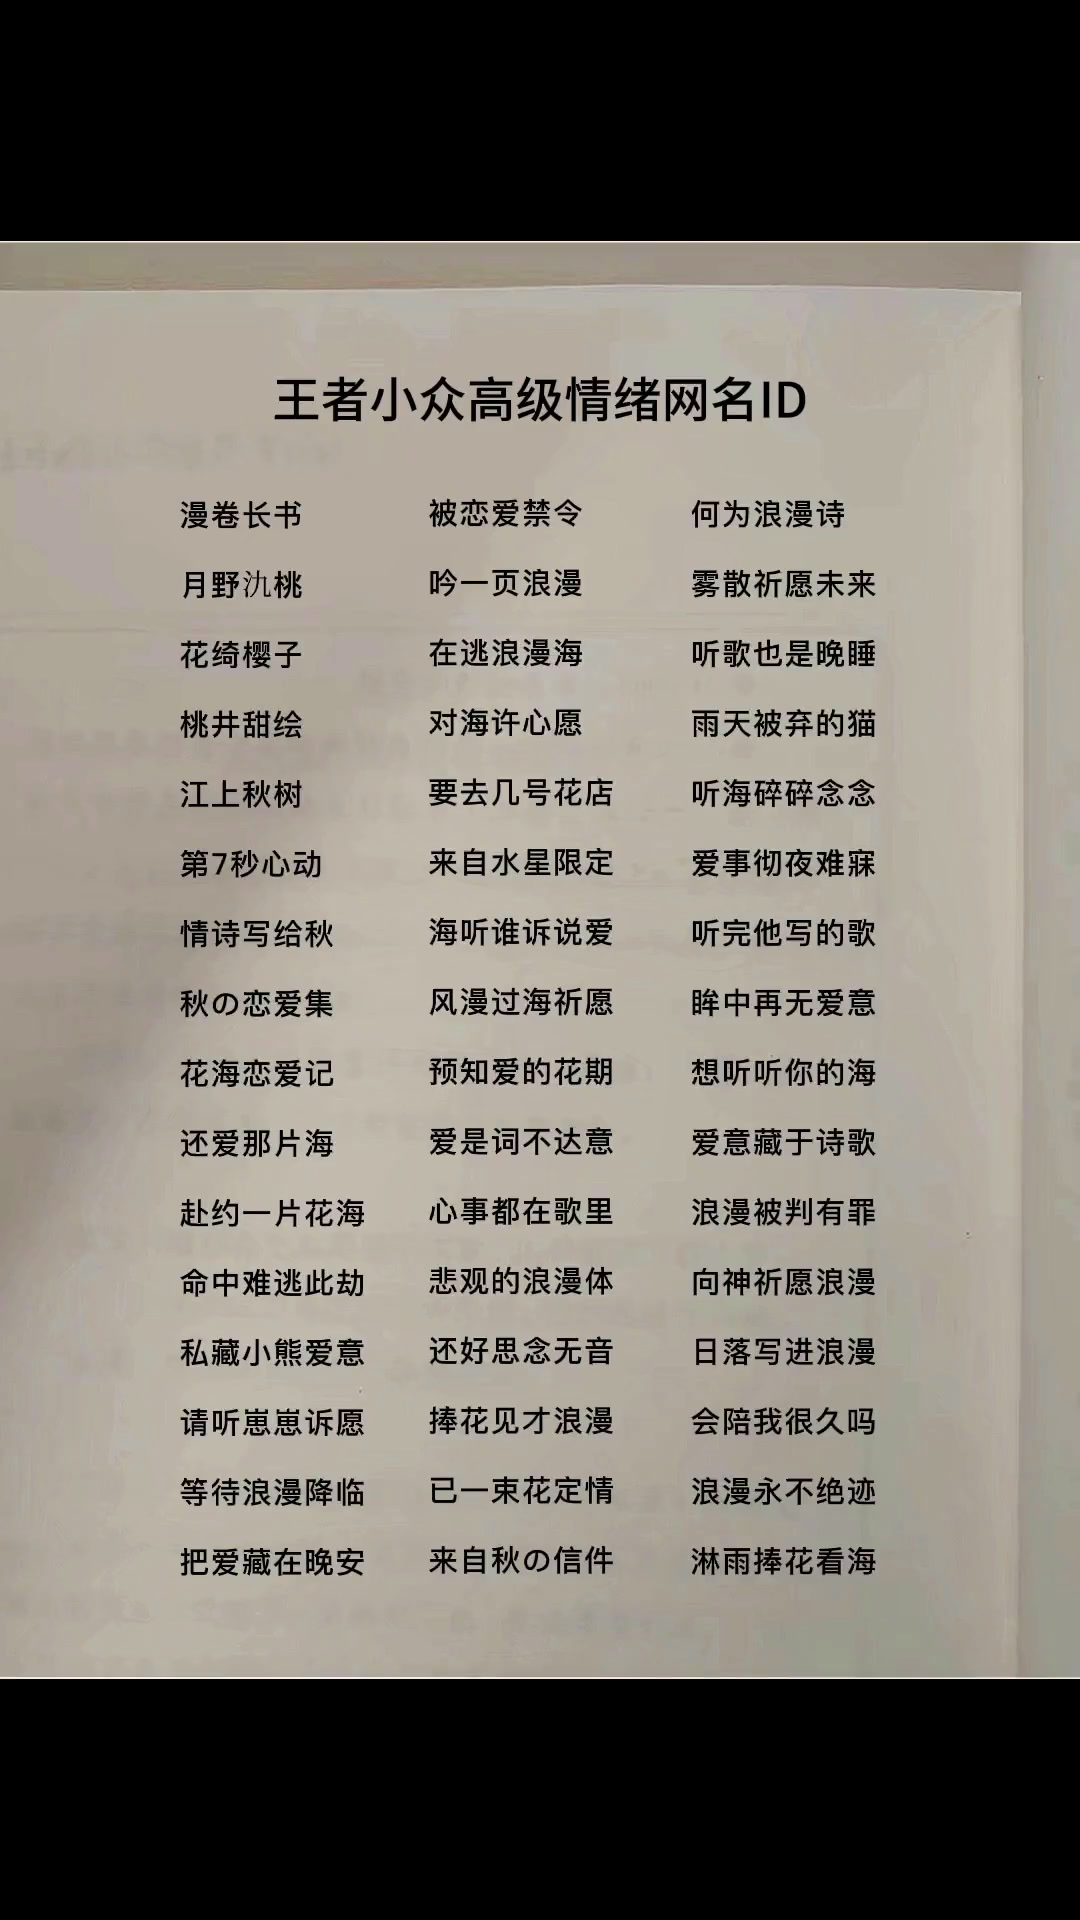 王者小众高级情绪网名ID
漫卷长书 被恋爱禁令 何为浪漫诗
月野氿桃 吟一页浪漫 雾散祈愿未来
花绮樱子 在逃浪漫海 听歌也是晚睡
桃井甜绘 对海许心愿 雨天被弃的猫
江上秋树 要去几号花店 听海碎碎念念
第7秒心动 来自水星限定 爱事彻夜难寐
情诗写给秋 海听谁诉说爱 听完他写的歌
秋の恋爱集 风漫过海祈愿 眸中再无爱意
花海恋爱记 预知爱的花期 想听听你的海
还爱那片海 爱是词不达意 爱意藏于诗歌
赴约一片花海 心事都在歌里 浪漫被判有罪
命中难逃此劫 悲观的浪漫体 向神祈愿浪漫
私藏小熊爱意 还好思念无音 日落写进浪漫
请听崽崽诉愿 捧花见才浪漫 会陪我很久吗
等待浪漫降临 已一束花定情 浪漫永不绝迹
把爱藏在晚安 来自秋の信件 淋雨捧花看海